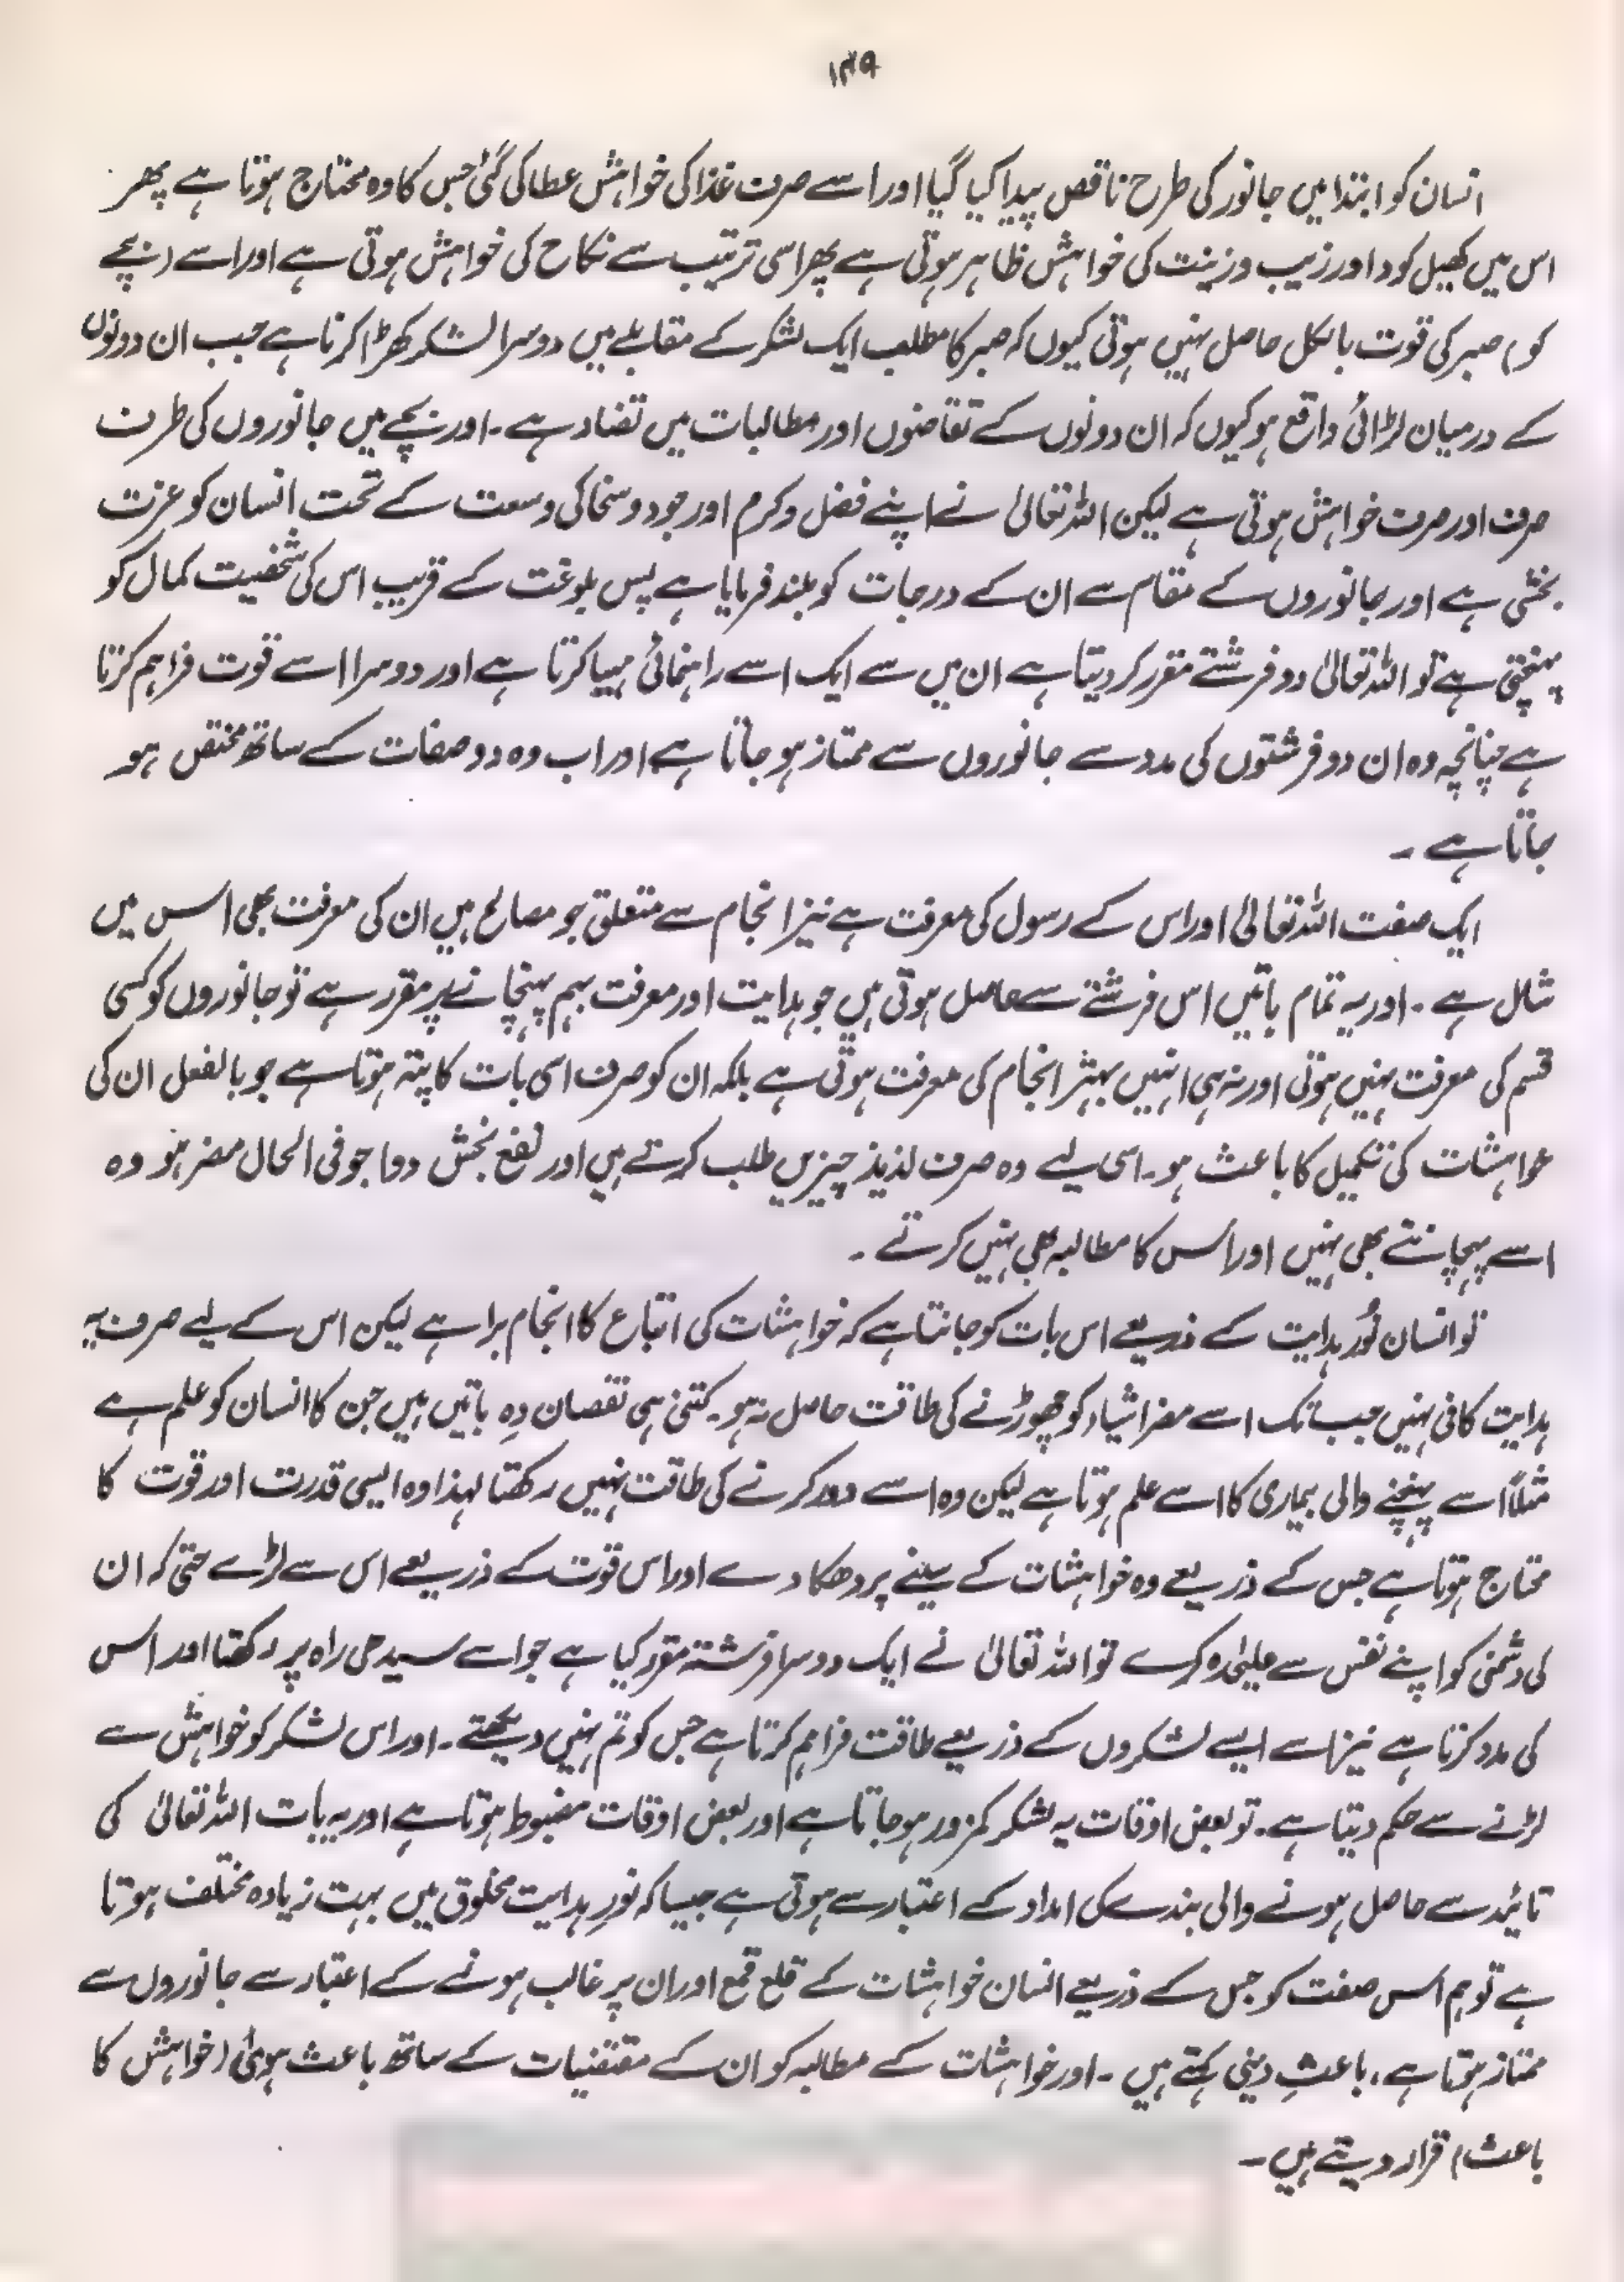 ۱۴۹
انسان کو ابتدا میں جانور کی طرح ناقص پیدا کیا گیا اور اسے صرف غذا کی خواہش عطا کی گئی جس کا وہ محتاج ہوتا ہے پھر
اس میں کھیل کود اور زیب وزینت کی خواہش ظاہر ہوتی ہے پھر اسی ترتیب سے نکاح کی خواہش ہوتی ہے اور اسے (بچے
کو) صبر کی قوت بالکل حاصل نہیں ہوتی کیوں کہ صبر کا مطلب ایک لشکر کے مقابلے میں دوسرا لشکر کھڑا کرنا ہے جب ان دونوں
کے درمیان لڑائی واقع ہو کیوں کہ ان دونوں کے تقاضوں اور مطالبات میں تضاد ہے ۔ اور بچے میں جانوروں کی طرف
صرف اور صرف خواہش ہوتی ہے لیکن اللہ تعالیٰ نے اپنے فضل وکرم اور جود وسخا کی وسعت کے تحت انسان کو عزت
بخشی ہے اور جانوروں کے مقام سے ان کے درجات کو بلند فرمایا ہے پس بلوغت کے قریب اس کی شخصیت کمال کو
پہنچتی ہے تو اللہ تعالیٰ دو فرشتے مقرر کر دیتا ہے ان میں سے ایک اسے راہنمائی مہیا کرتا ہے اور دوسرا اسے قوت فراہم کرتا
ہے چنانچہ وہ ان دو فرشتوں کی مدد سے جانوروں سے ممتاز ہو جاتا ہے اور اب وہ دو صفات کے ساتھ مختص ہو
جاتا ہے ۔
ایک صفت اللہ تعالیٰ اور اس کے رسول کی معرفت ہے نیز انجام سے متعلق جو مصالح ہیں ان کی معرفت بھی اس میں
شامل ہے ۔ اور یہ تمام باتیں اس فرشتے سے حاصل ہوتی ہیں جو ہدایت اور معرفت بہم پہنچانے پر مقرر ہے تو جانوروں کو کسی
قسم کی معرفت نہیں ہوتی اور نہ ہی انہیں بہتر انجام کی معرفت ہوتی ہے بلکہ ان کو صرف اسی بات کا پتہ ہوتا ہے جو بالفعل ان کی
خواہشات کی تکمیل کا باعث ہو ۔ اسی لیے وہ صرف لذیذ چیزیں طلب کرتے ہیں اور نفع بخش دوا جو فی الحال مضر ہو وہ
اسے پہچانتے بھی نہیں اور اس کا مطالبہ بھی نہیں کرتے ۔
تو انسان نُور ہدایت کے ذریعے اس بات کو جانتا ہے کہ خواہشات کی اتباع کا انجام برا ہے لیکن اس کے لیے صرف یہ
ہدایت کافی نہیں جب تک اسے مضر اشیاء کو چھوڑنے کی طاقت حاصل نہ ہو ۔ کتنی ہی نقصان دِہ باتیں ہیں جن کا انسان کو علم ہے
مثلاً اسے پہنچنے والی بیماری کا اسے علم ہوتا ہے لیکن وہ اسے دور کرنے کی طاقت نہیں رکھتا لہذا وہ ایسی قدرت اور قوت کا
محتاج ہوتا ہے جس کے ذریعے وہ خواہشات کے سینے پر دھکا دے اور اس قوت کے ذریعے اس سے لڑے حتیٰ کہ ان
کی دشمنی کو اپنے نفس سے علیٰحدہ کرے تو اللہ تعالیٰ نے ایک دوسرا فرشتہ مقرر کیا ہے جو اسے سیدھی راہ پر رکھتا اور اس
کی مدد کرتا ہے نیز اسے ایسے لشکروں کے ذریعے طاقت فراہم کرتا ہے جس کو تم نہیں دیکھتے ۔ اور اس لشکر کو خواہش سے
لڑنے سے حکم دیتا ہے ۔ تو بعض اوقات یہ لشکر کمزور ہو جاتا ہے اور بعض اوقات مضبوط ہوتا ہے اور یہ بات اللہ تعالیٰ کی
تائید سے حاصل ہونے والی بندے کی امداد کے اعتبار سے ہوتی ہے جیسا کہ نورِ ہدایت مخلوق میں بہت زیادہ مختلف ہوتا
ہے تو ہم اس صفت کو جس کے ذریعے انسان خواہشات کے قلع قمع اور ان پر غالب ہونے کے اعتبار سے جانوروں سے
ممتاز ہوتا ہے، باعثِ دینی کہتے ہیں ۔ اور خواہشات کے مطالبہ کو ان کے مقتضیات کے ساتھ باعث ہوئ (خواہش کا
باعث) قرار دیتے ہیں ۔